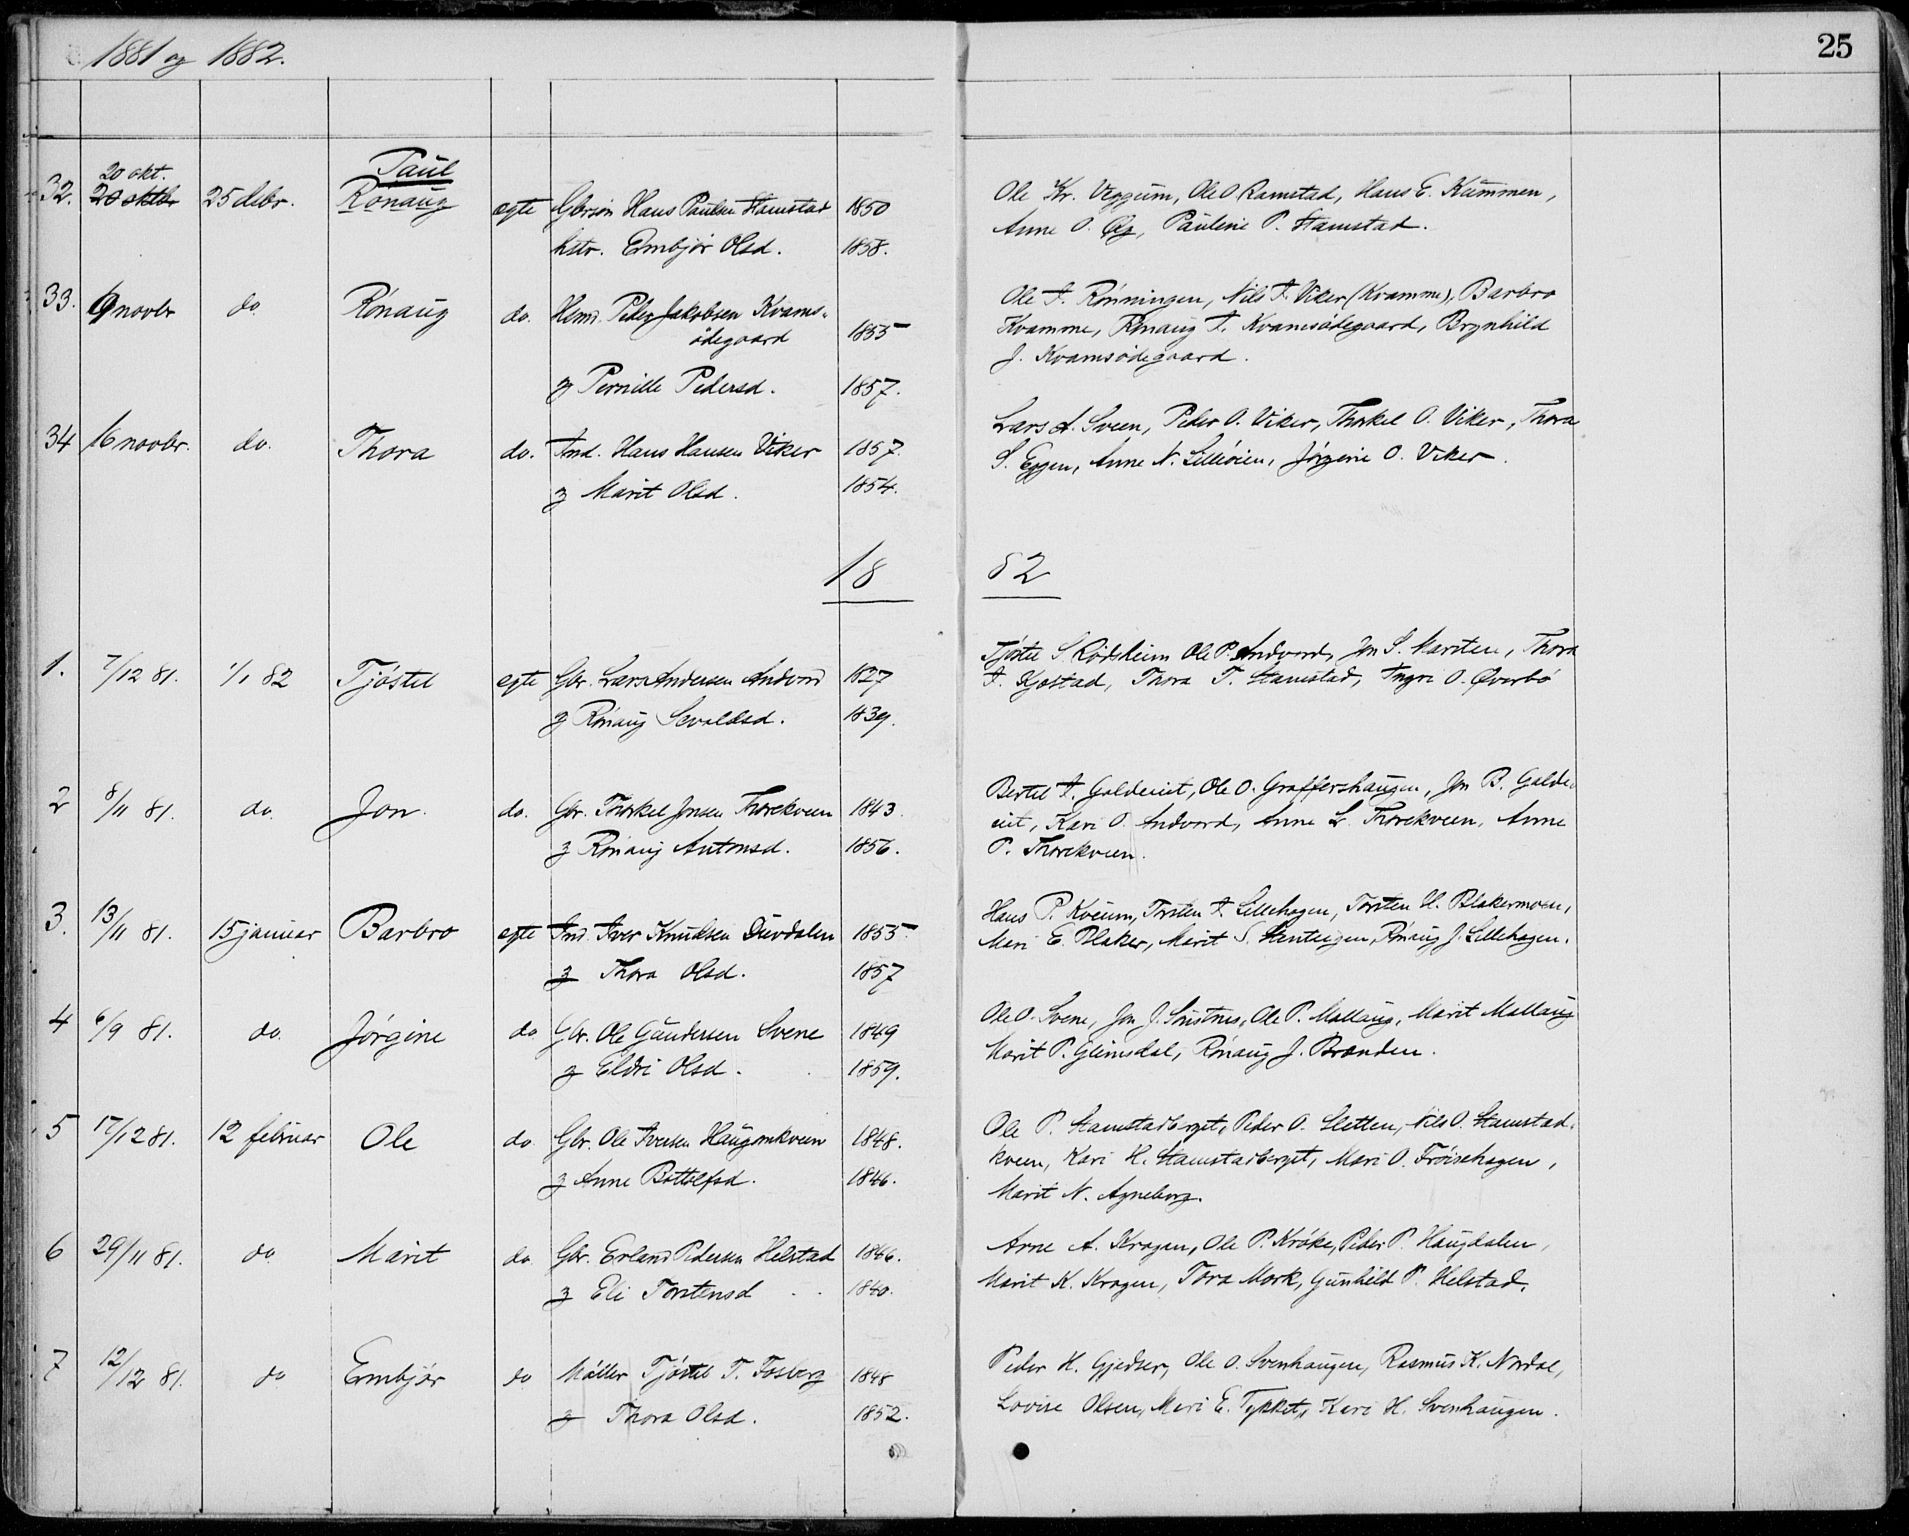 1881 og 1882.
25
32. 20 okt. 25 debr. Paul ægte Gbrsøn Hans Paulsen Stamstad 1850
20 oktbr Rónaug
hstr. Embjør Olsd. 1858.
Ole Kr. Veggum, Ole O Ramstad, Hans E. Kummen,
Anne O. Øy, Pauline P. Stamstad.
33. 9 novbr do. Rónaug do. Hsmd. Peder Jakobsen Kvams-
ødegaard 1855
g Pernille Pedersd. 1857.
Ole I. Rønningen, Nils I. Viker (Kvamme), Barbro
Kvamme, Rónaug I. Kvamsødegaard, Brynhild
J. Kvamsødegaard.
34 16 novbr. do. Thora do. Ind. Hans Hansen Viker 1857.
g Marit Olsd. 1854.
Lars A. Sveen, Peder O. Viker, Thorkel O. Viker, Thora
S. Eggen, Anne N. Lilleøien, Jørgine O. Viker.
18 82
1. 7/12 81. 1/1 82 Tjøstel egte Gbr. Lars Andersen Andvord 1827
g Rónaug Sevaldsd. 1839.
Tjøstel S Rødsheim Ole P. Andvord, Jon S. Marstein, Thora
I. Kjøstad, Thora T. Stamstad, Ingri O. Øverbø
2 8/11 81. do. Jon. do. Gbr. Thorkel Jonsen Thorekveen 1843.
g Rónaug Antonsd. 1856.
Bertel I. Galdeiet, Ole O. Graffershaugen, Jon B. Galde-
iet, Kari O. Andvord, Anne L. Thorekveen, Anne
P. Thorekveen.
3. 13/11 81. 15 januar Barbro egte Ind. Iver Knudsen Duvdalen 1855.
g Thora Olsd. 1857
Hans P. Kveum, Torsten I. Lillehagen, Torsten H. Blakermoen,
Mari E. Blaker, Marit S. Rónaug J. Lillehagen.
4 6/9 81. do. Jørgine do Gbr. Ole Gundersen Svene 1849
g Eldri Olsd. 1859.
Ole O. Svene, Jon J. Sustnes, Ole P. Mallaug, Marit Mallaug
Marit P. Glimsdal, Rónaug J. Brænden.
5 17/12 81. 12 februar Ole do Gbr. Ole Iversen Haugomkveen 1848.
g Anne Bottolfsd. 1846.
Ole P. Stamstadberget, Peder O. Sletten, Nils O. Stamstad-
kveen, Kari H. Stamstadberget, Mari O. Frøisehagen,
Marit N. Agneborg.
6 29/11 81. do Marit do Gbr. Erland Pedersen Helstad 1846.
g Eli Torstensd 1840.
Arne A. Kragen, Ole P. Krøke, Peder P. Haugdalen,
Marit K. Kragen, Tora Mork, Gunhild P. Helstad.
7 12/12 81. do Embjør do Møller Tjøstel T. Fosberg 1848
g Thora Olsd. 1852.
Peder H. Gjedser, Ole O. Svenhaugen, Rasmus K. Nordal,
Lovise Olsen, Mari E. Tykket, Kari H. Svenhaugen.